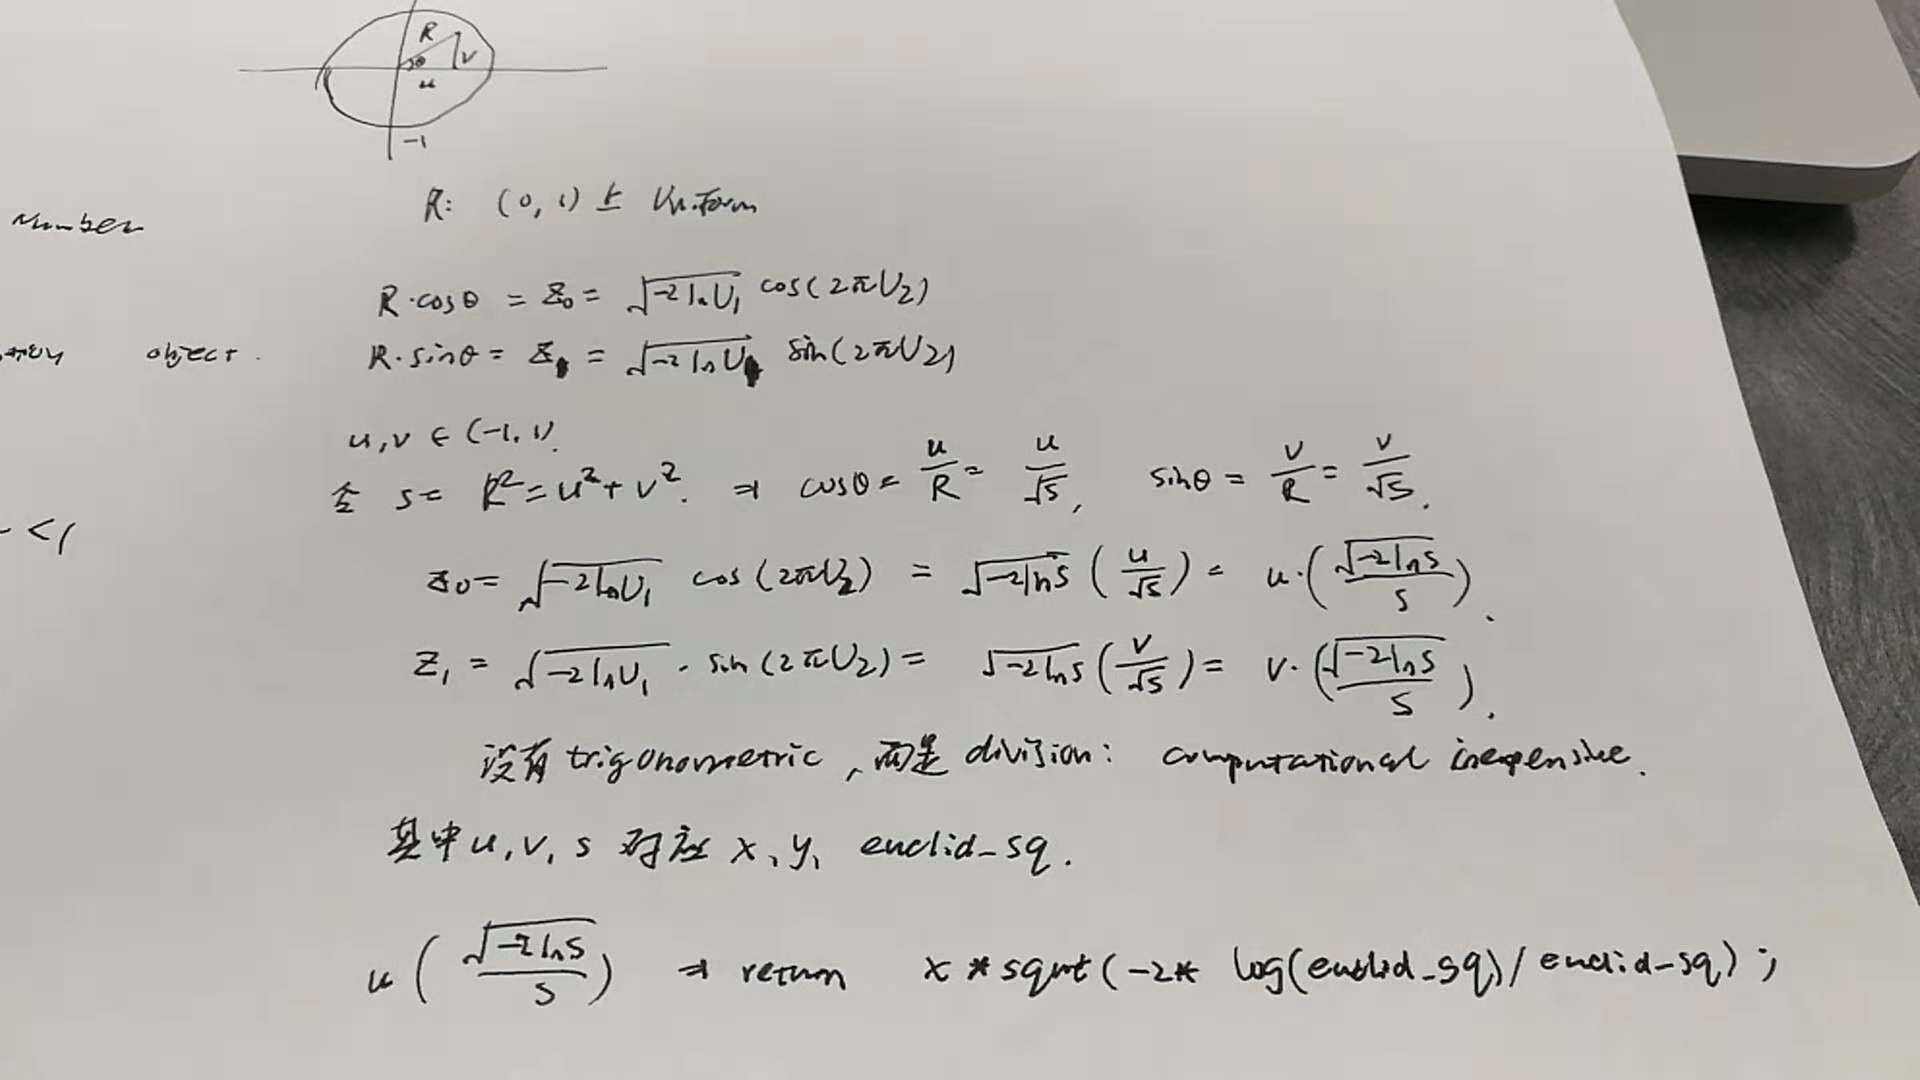 R
θ
v
u
-1
R: (0, 1) 上 Uniform
Number
R·cosθ = Z₀ = √(-2lnU₁) cos(2πU₂)
object.
R·sinθ = Z₁ = √(-2lnU₁) sin(2πU₂)
u, v ∈ (-1, 1).
令 s = R² = u² + v². ⇒ cosθ = u/R = u/√s, sinθ = v/R = v/√s.
<1
z₀ = √(-2lnU₁) cos(2πU₂) = √(-2lns) (u/√s) = u·(√(-2lns)/s).
Z₁ = √(-2lnU₁) · sin(2πU₂) = √(-2lns) (v/√s) = v·(√(-2lns)/s).
没有 trigonometric, 而是 division: computational inexpensive.
其中 u, v, s 对应 x, y, euclid_sq.
u(√(-2lns)/s) ⇒ return x * sqrt(-2* log(euclid_sq)/euclid_sq);